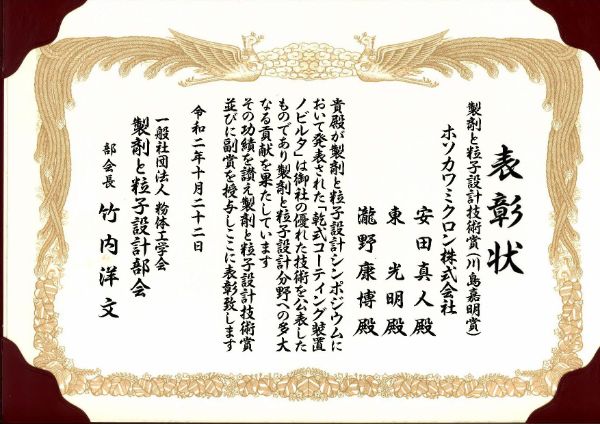 表彰状
製剤と粒子設計技術賞(川島嘉明賞)
ホソカワミクロン株式会社
安田真人殿
東光明殿
瀧野康博殿
貴殿が製剤と粒子設計シンポジウムに
おいて発表された「乾式コーティング装置
ノビルタ」は御社の優れた技術を公表した
ものであり製剤と粒子設計分野への多大
なる貢献を果たしています
その功績を讃え製剤と粒子設計技術賞
並びに副賞を授与しここに表彰致します
令和二年十月二十二日
一般社団法人 粉体工学会
製剤と粒子設計部会
部会長 竹内洋文